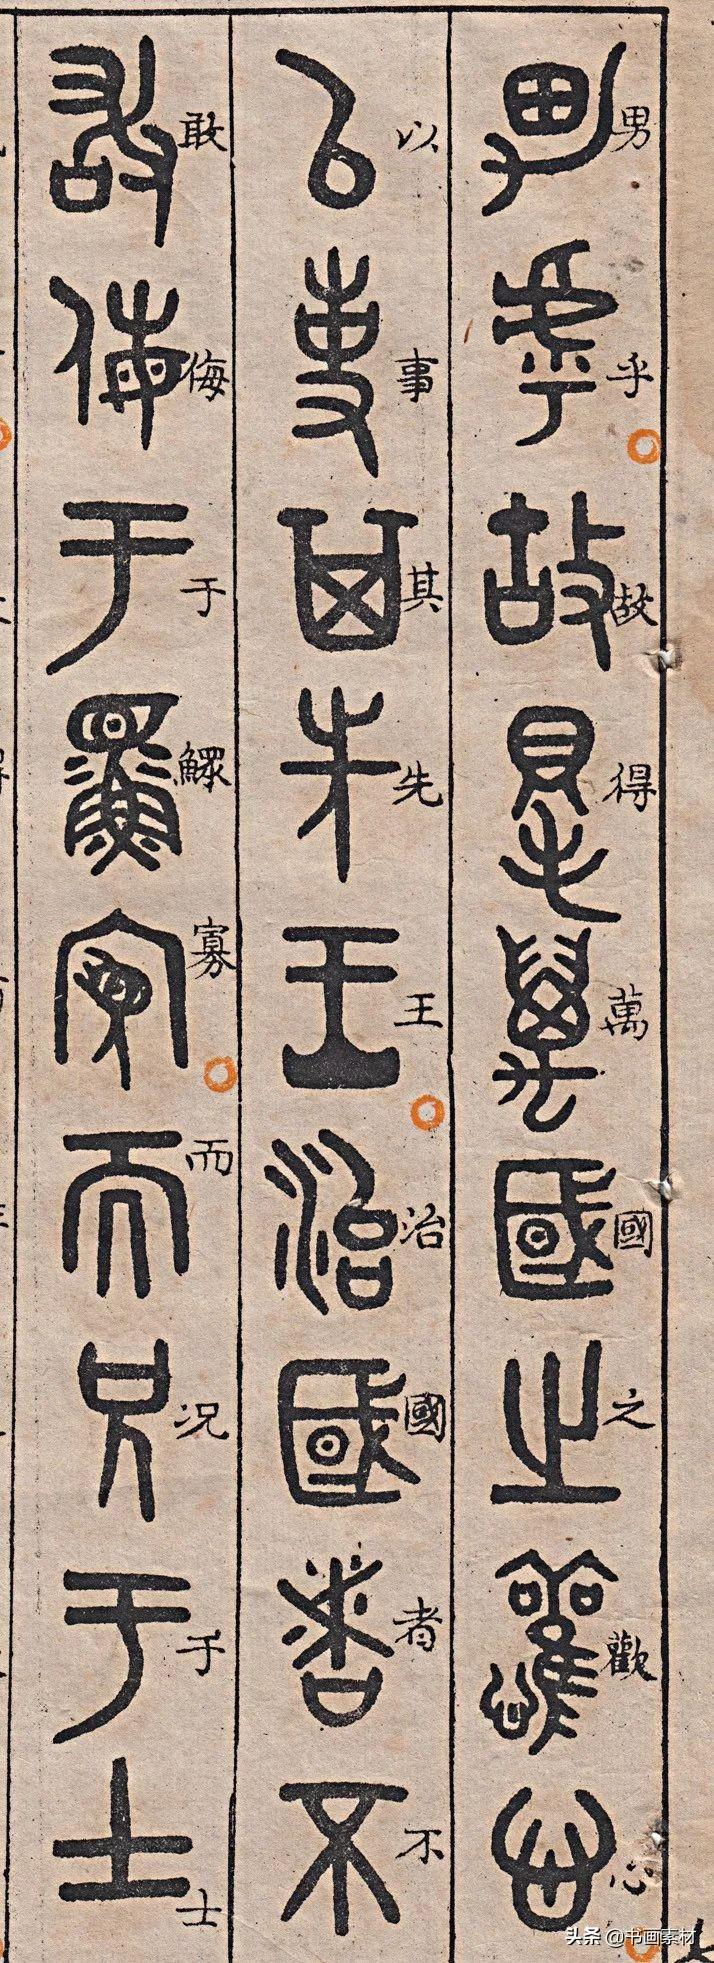 男乎故得萬國之歡心
以事其先王治國者不
敢侮于鰥寡而况于士
头条 @书画素材